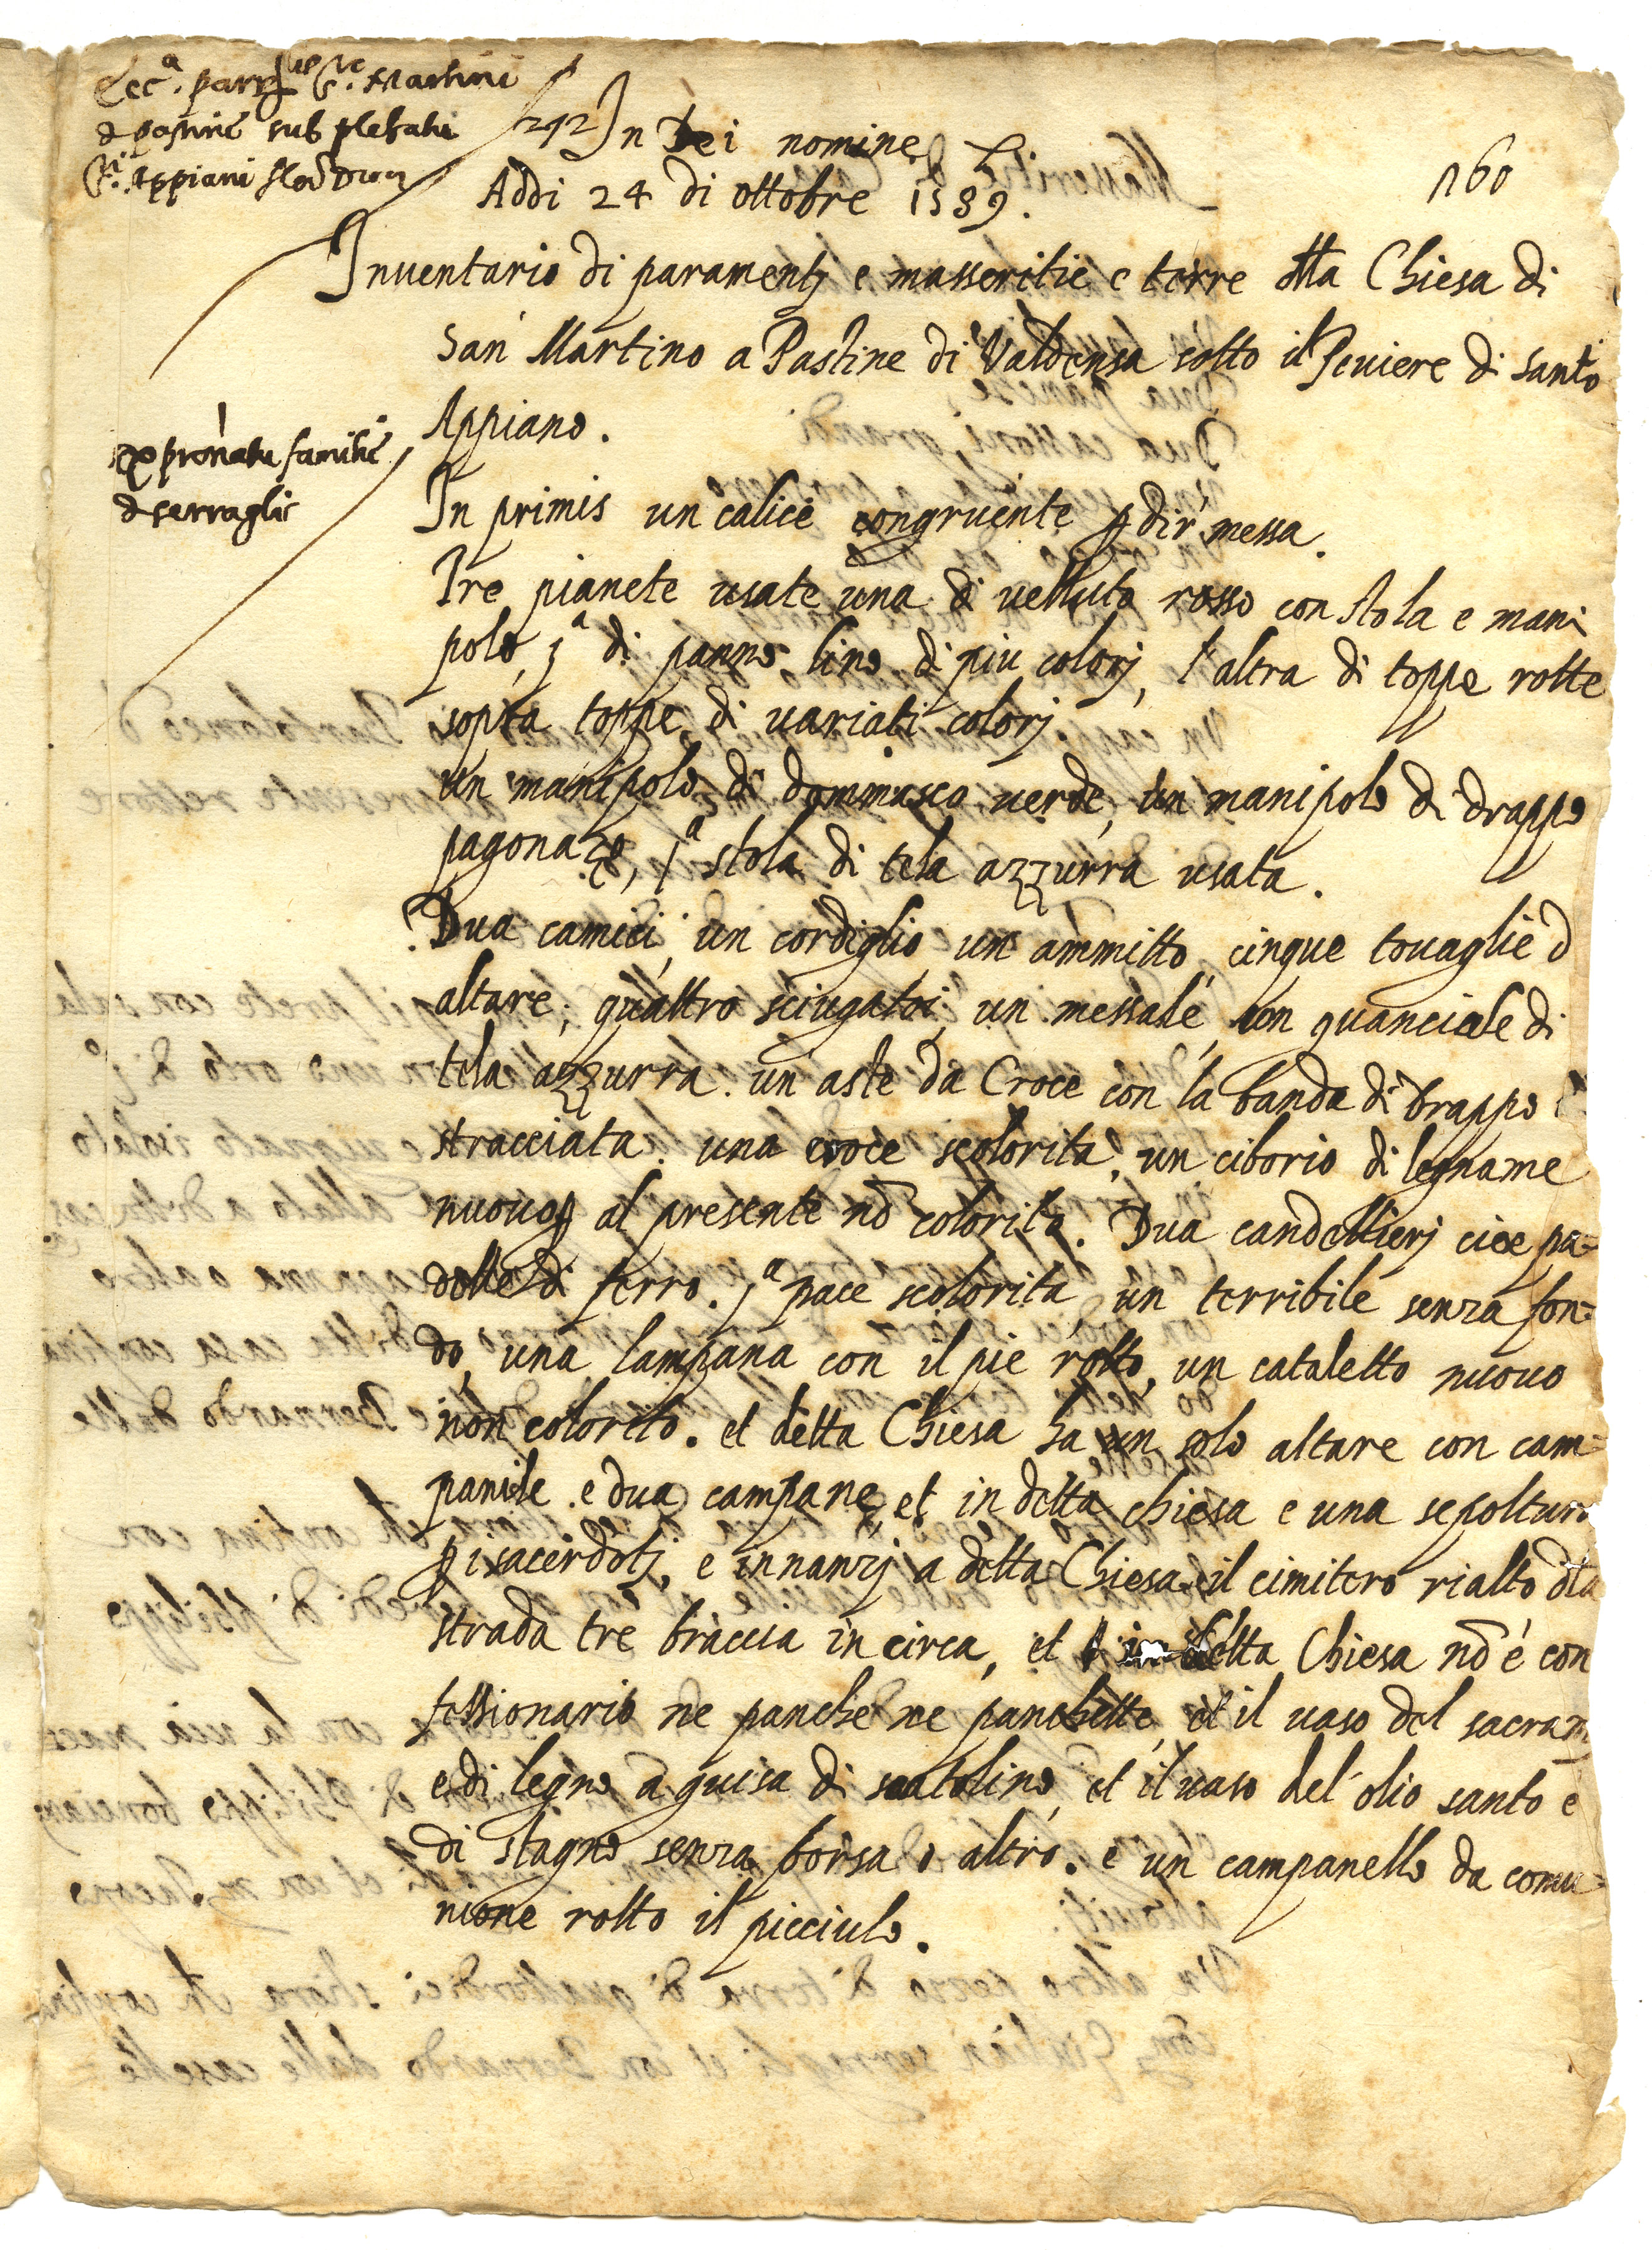 Ecc.ª parr.lis S.ti Martini
d pastine sub plebatu
S.ti Appiani
292 In Dei nomine
160
Addi 24 di ottobre 1589.
Inuentario di paramentj e masseritie e terre dlla Chiesa di
San Martino a Pastine di Valdensa sotto il Piuiere di Santo
Appiano.
familie
d serraglis
In primis un calice congruente p dir messa.
Tre pianete usate una di uelluto rosso con stola e mani
polo, jª di panno lino di piu colorj, l'altra di toppe rotte
sopra toppe di uariati colorj
un manipolo di dommasco uerde, un manipolo di drappo
pagonazo, jª stola di tela azzurra usata.
Dua camici, un cordiglio un ammitto, cinque touaglie d
altare, quattro sciugatoi, un messale, un guanciale di
tela azzurra. un aste da Croce con la banda di drappo
stracciata. una croce scolorita, un ciborio di legname
nuouo al presente nō colorito. Dua candellierj cioe pa=
delle di ferro. jª pace scolorita, un terribile senza fon=
do, una lampana con il pie rotto, un cataletto nuouo
non colorito. et detta Chiesa ha un solo altare con cam=
panile e dua campane, et in detta chiesa e una sepoltura
p i sacerdotj, e innanzj a detta Chiesa il cimitero rialto dla
strada tre braccia in circa, et in detta Chiesa nō é con
fessionario ne panche ne panchette, et il uaso del sacram
e di legno a guisa di scatolino, et il uaso del' olio santo e
di stagno senza borsa o altro. e un campanello da comu=
nione rotto il picciulo.